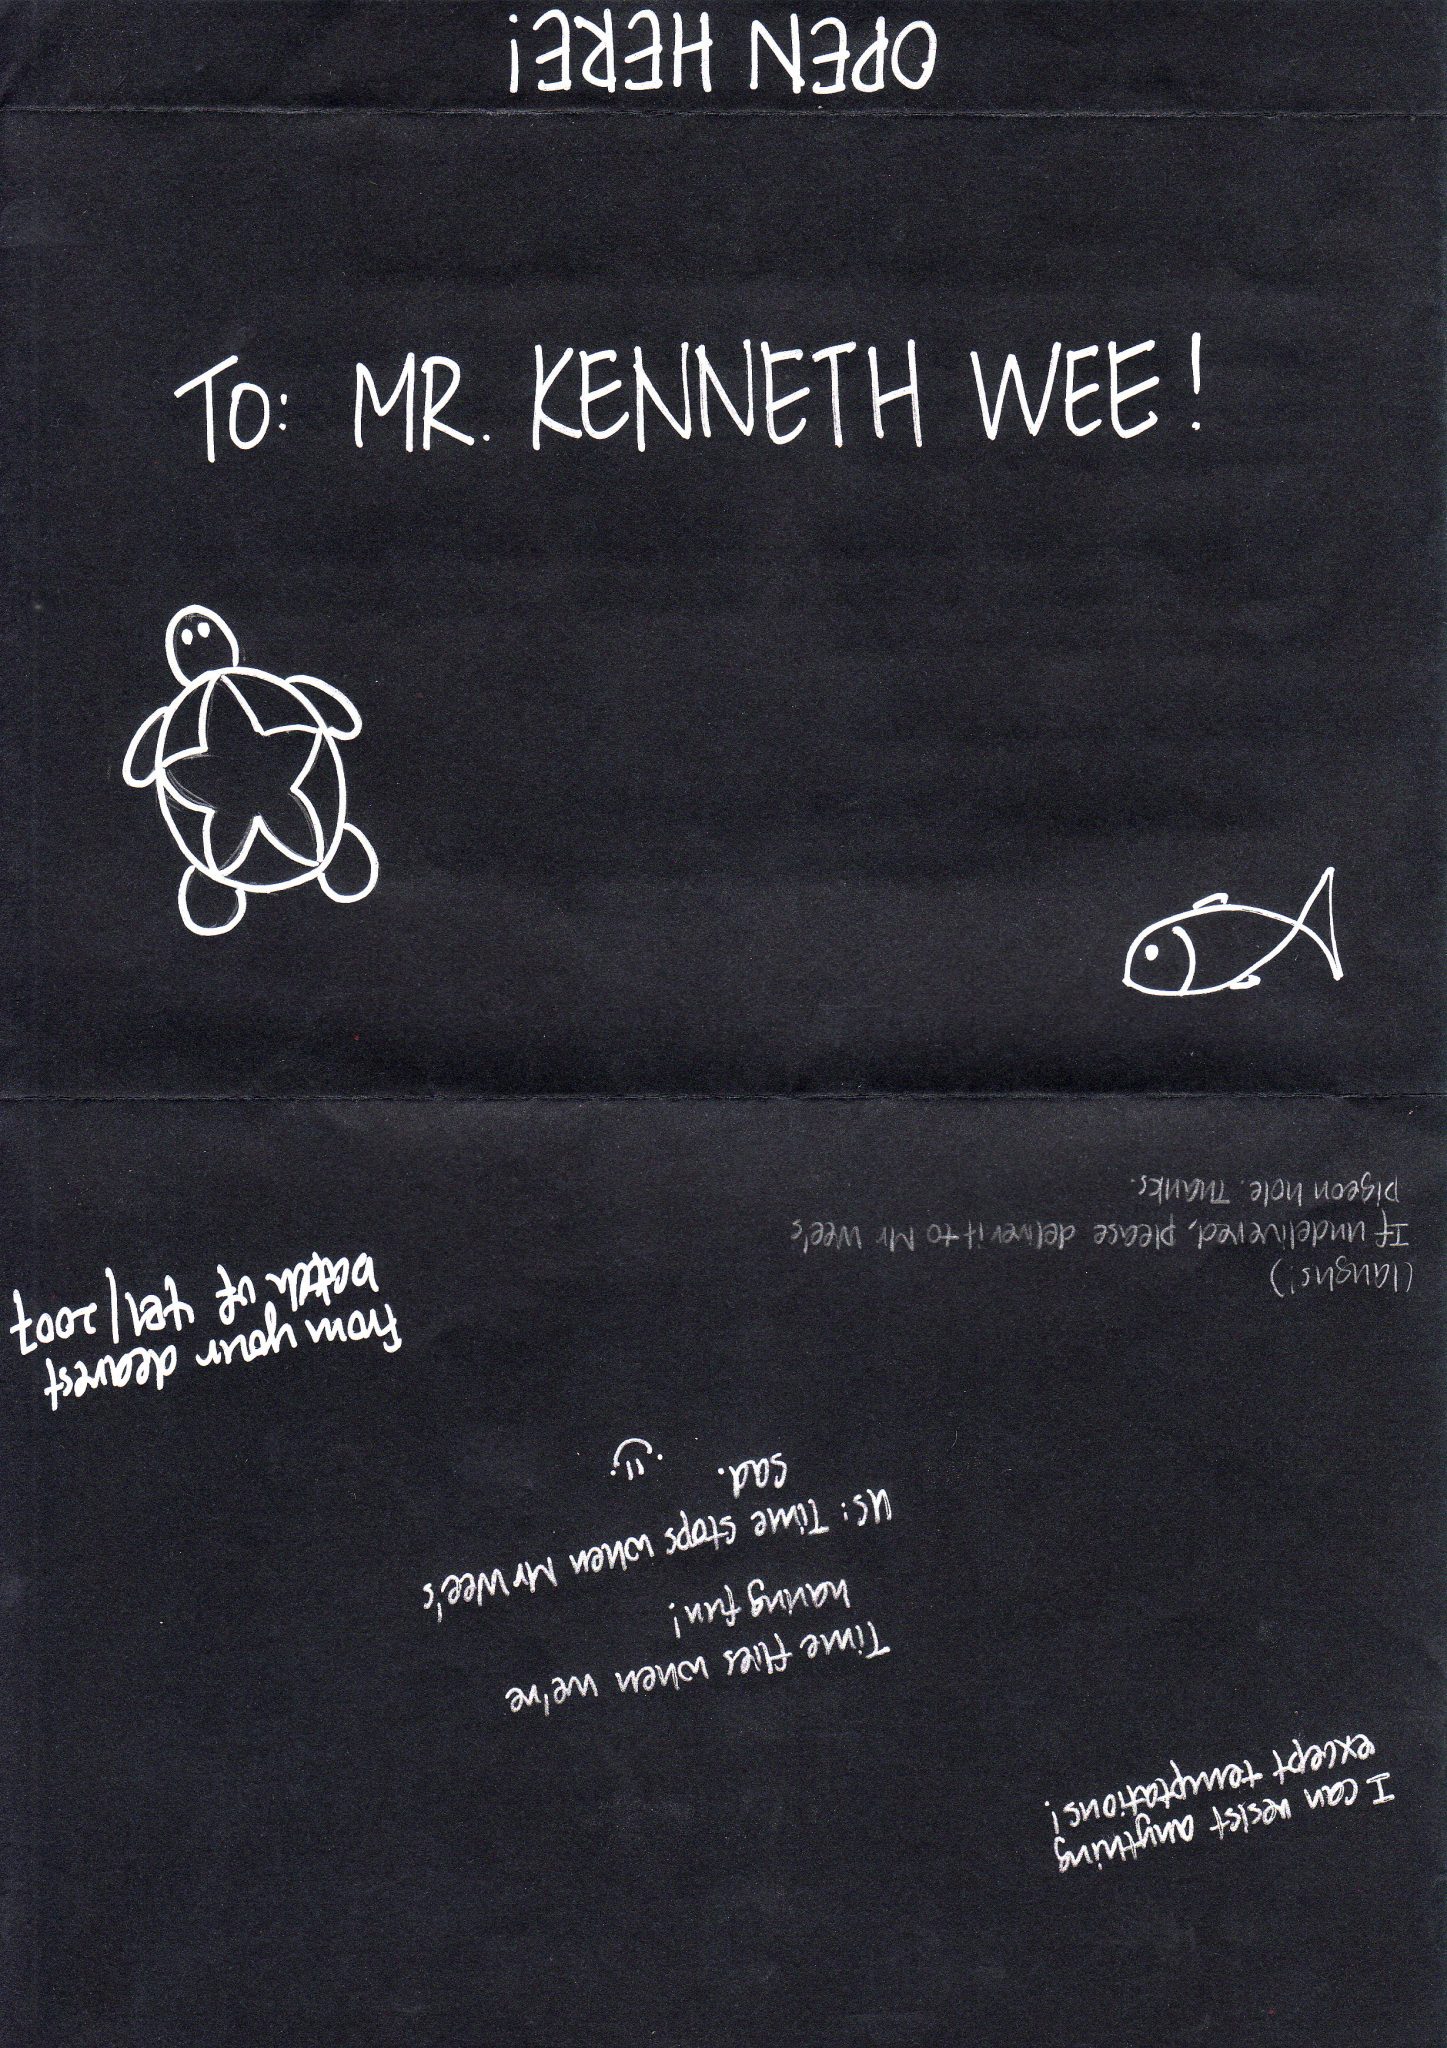 OPEN HERE!
TO: MR. KENNETH WEE!
I can resist anything
except temptations!
Time flies when we're
having fun!
us: Time stops when Mr Wee's
sad.
from your dearest
batch of 4E1/2007
(laughs!)
If undelivered, please deliver it to Mr Wee's
pigeon hole. Thanks.